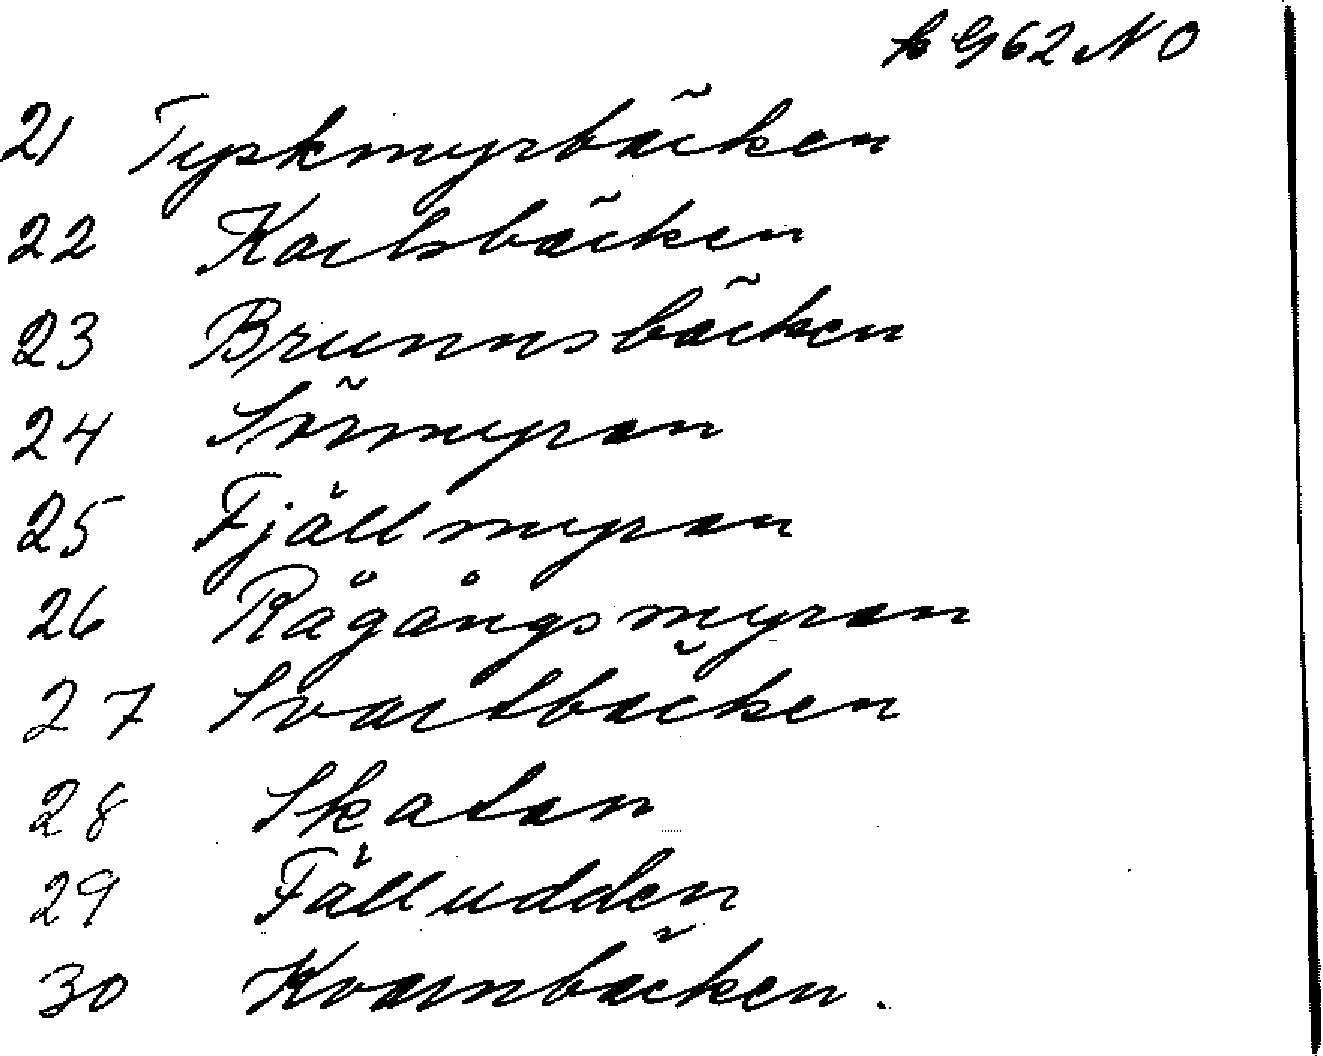 G62 NO
21 Tyskmyrbäcken
22 Karlsbäcken
23 Brunnsbäcken
24 Sörmyran
25 Fjällmyran
26 Rågångsmyran
27 Svartbäcken
28 Skatan
29 Fälludden
30 Kvarnbäcken.